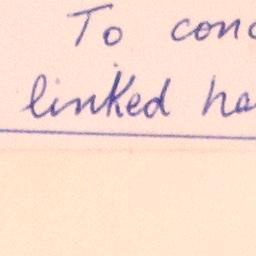 To conc
linked ha